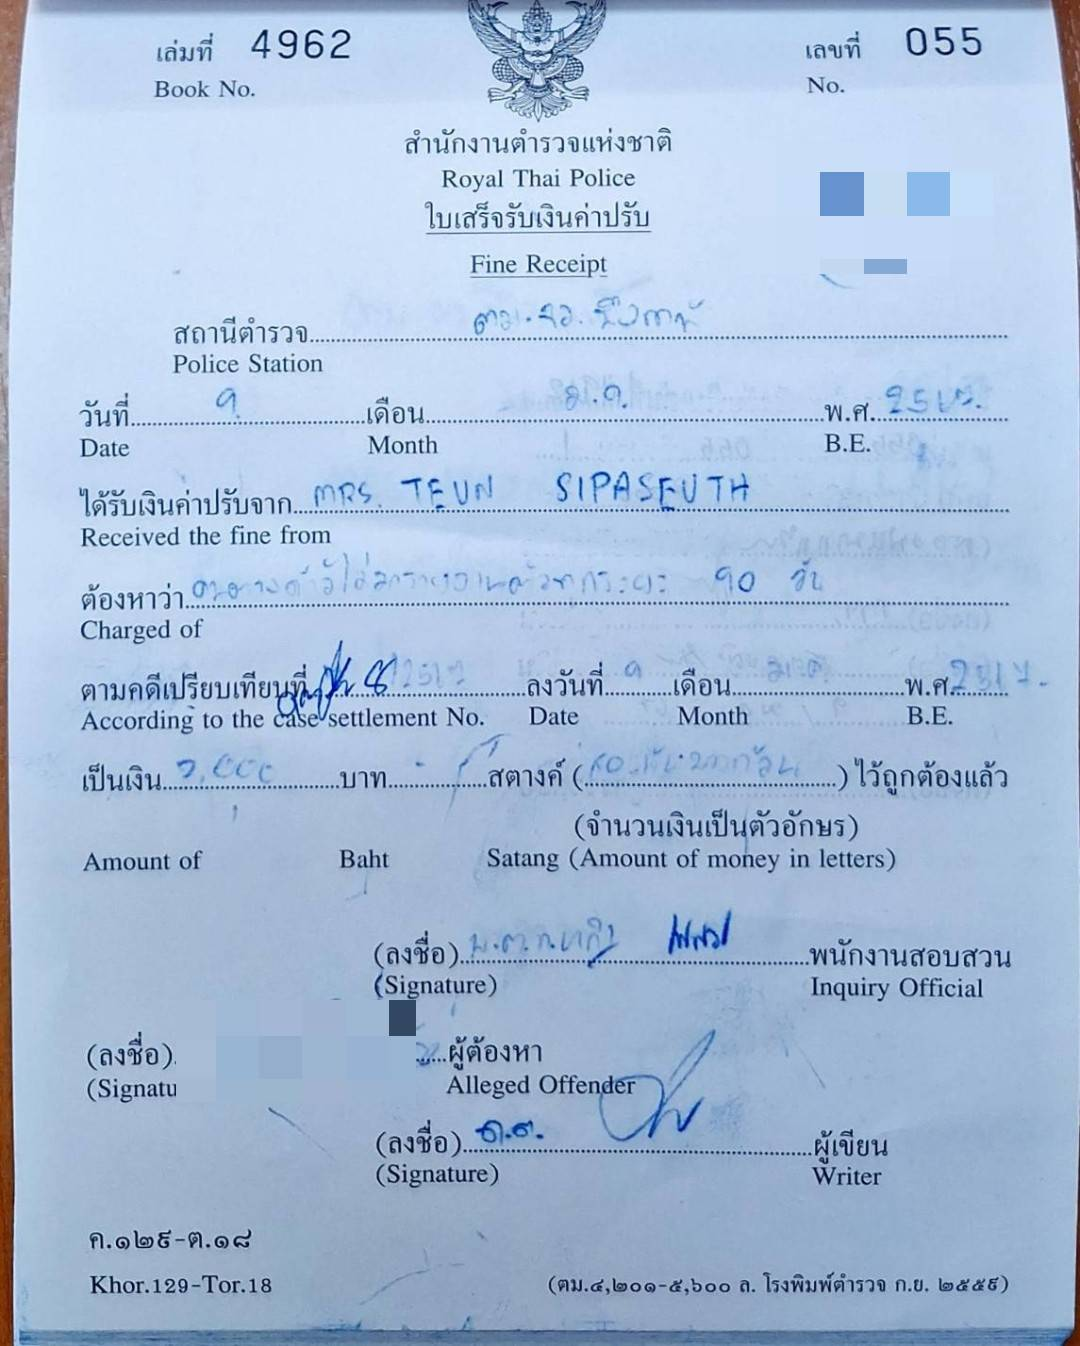 เล่มที่ 4962 เลขที่ 055
Book No. No.
สำนักงานตำรวจแห่งชาติ
Royal Thai Police
ใบเสร็จรับเงินค่าปรับ
Fine Receipt
สถานีตำรวจ ตม.จว.บึงกาฬ
Police Station
วันที่ 9 เดือน ม.ค. พ.ศ.
Date Month B.E.
ได้รับเงินค่าปรับจาก MRS. TEUN SIPASEUTH
Received the fine from
ต้องหาว่า 90 วัน
Charged of
ตามคดีเปรียบเทียบที่ ลงวันที่ 9 เดือน ม.ค. พ.ศ.
According to the case settlement No. Date Month B.E.
เป็นเงิน บาท สตางค์ ( ) ไว้ถูกต้องแล้ว
(จำนวนเงินเป็นตัวอักษร)
Amount of Baht Satang (Amount of money in letters)
(ลงชื่อ) พนักงานสอบสวน
(Signature) Inquiry Official
(ลงชื่อ) ผู้ต้องหา
(Signatu Alleged Offender
(ลงชื่อ) ด.ต. ผู้เขียน
(Signature) Writer
ค.๑๒๙-ต.๑๘
Khor.129-Tor.18 (ตม.๔,๒๐๑-๕,๖๐๐ ล. โรงพิมพ์ตำรวจ ก.ย. ๒๕๕๙)